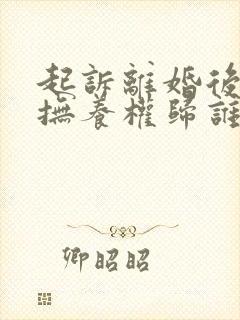 起訴離婚後
撫養權歸誰
卿昭昭